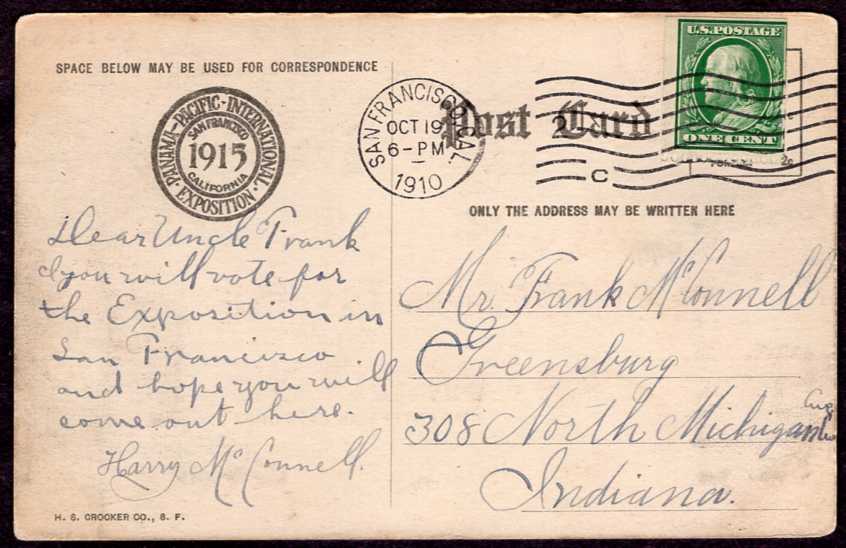 SPACE BELOW MAY BE USED FOR CORRESPONDENCE
PANAMA-PACIFIC-INTERNATIONAL
SAN FRANCISCO
1915
CALIFORNIA
EXPOSITION
Dear Uncle Frank
I you will vote for
the Exposition in
San Francisco
and hope you will
come out here.
Harry McConnell.
H. S. CROCKER CO., S. F.
SAN FRANCISCO, CAL.
OCT 19
6-PM
1910
Post Card
2
C
U.S. POSTAGE
ONE CENT
ONLY THE ADDRESS MAY BE WRITTEN HERE
Mr. Frank McConnell
Greensburg
308 North Michigan
Indiana.